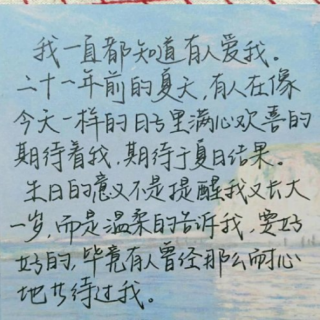 我一直都知道有人爱我。
二十一年前的夏天,有人在像
今天一样的日子里满心欢喜的
期待着我,期待于夏日结果。
生日的意义不是提醒我又长大
一岁,而是温柔的告诉我,要好
好的,毕竟有人曾经那么耐心
地过我。